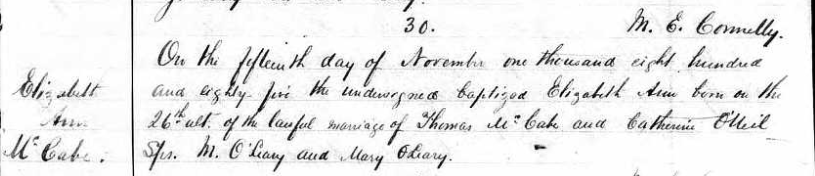 30. M. E. Connelly.
On the fifteenth day of November one thousand eight hundred
Elizabeth and eighty five the undersigned baptized Elizabeth Ann born on the
Ann 26th ult. of the lawful marriage of Thomas Mc Cabe and Catherine O'Neil
Mc Cabe. Sps. M. O'Leary and Mary O'Leary.